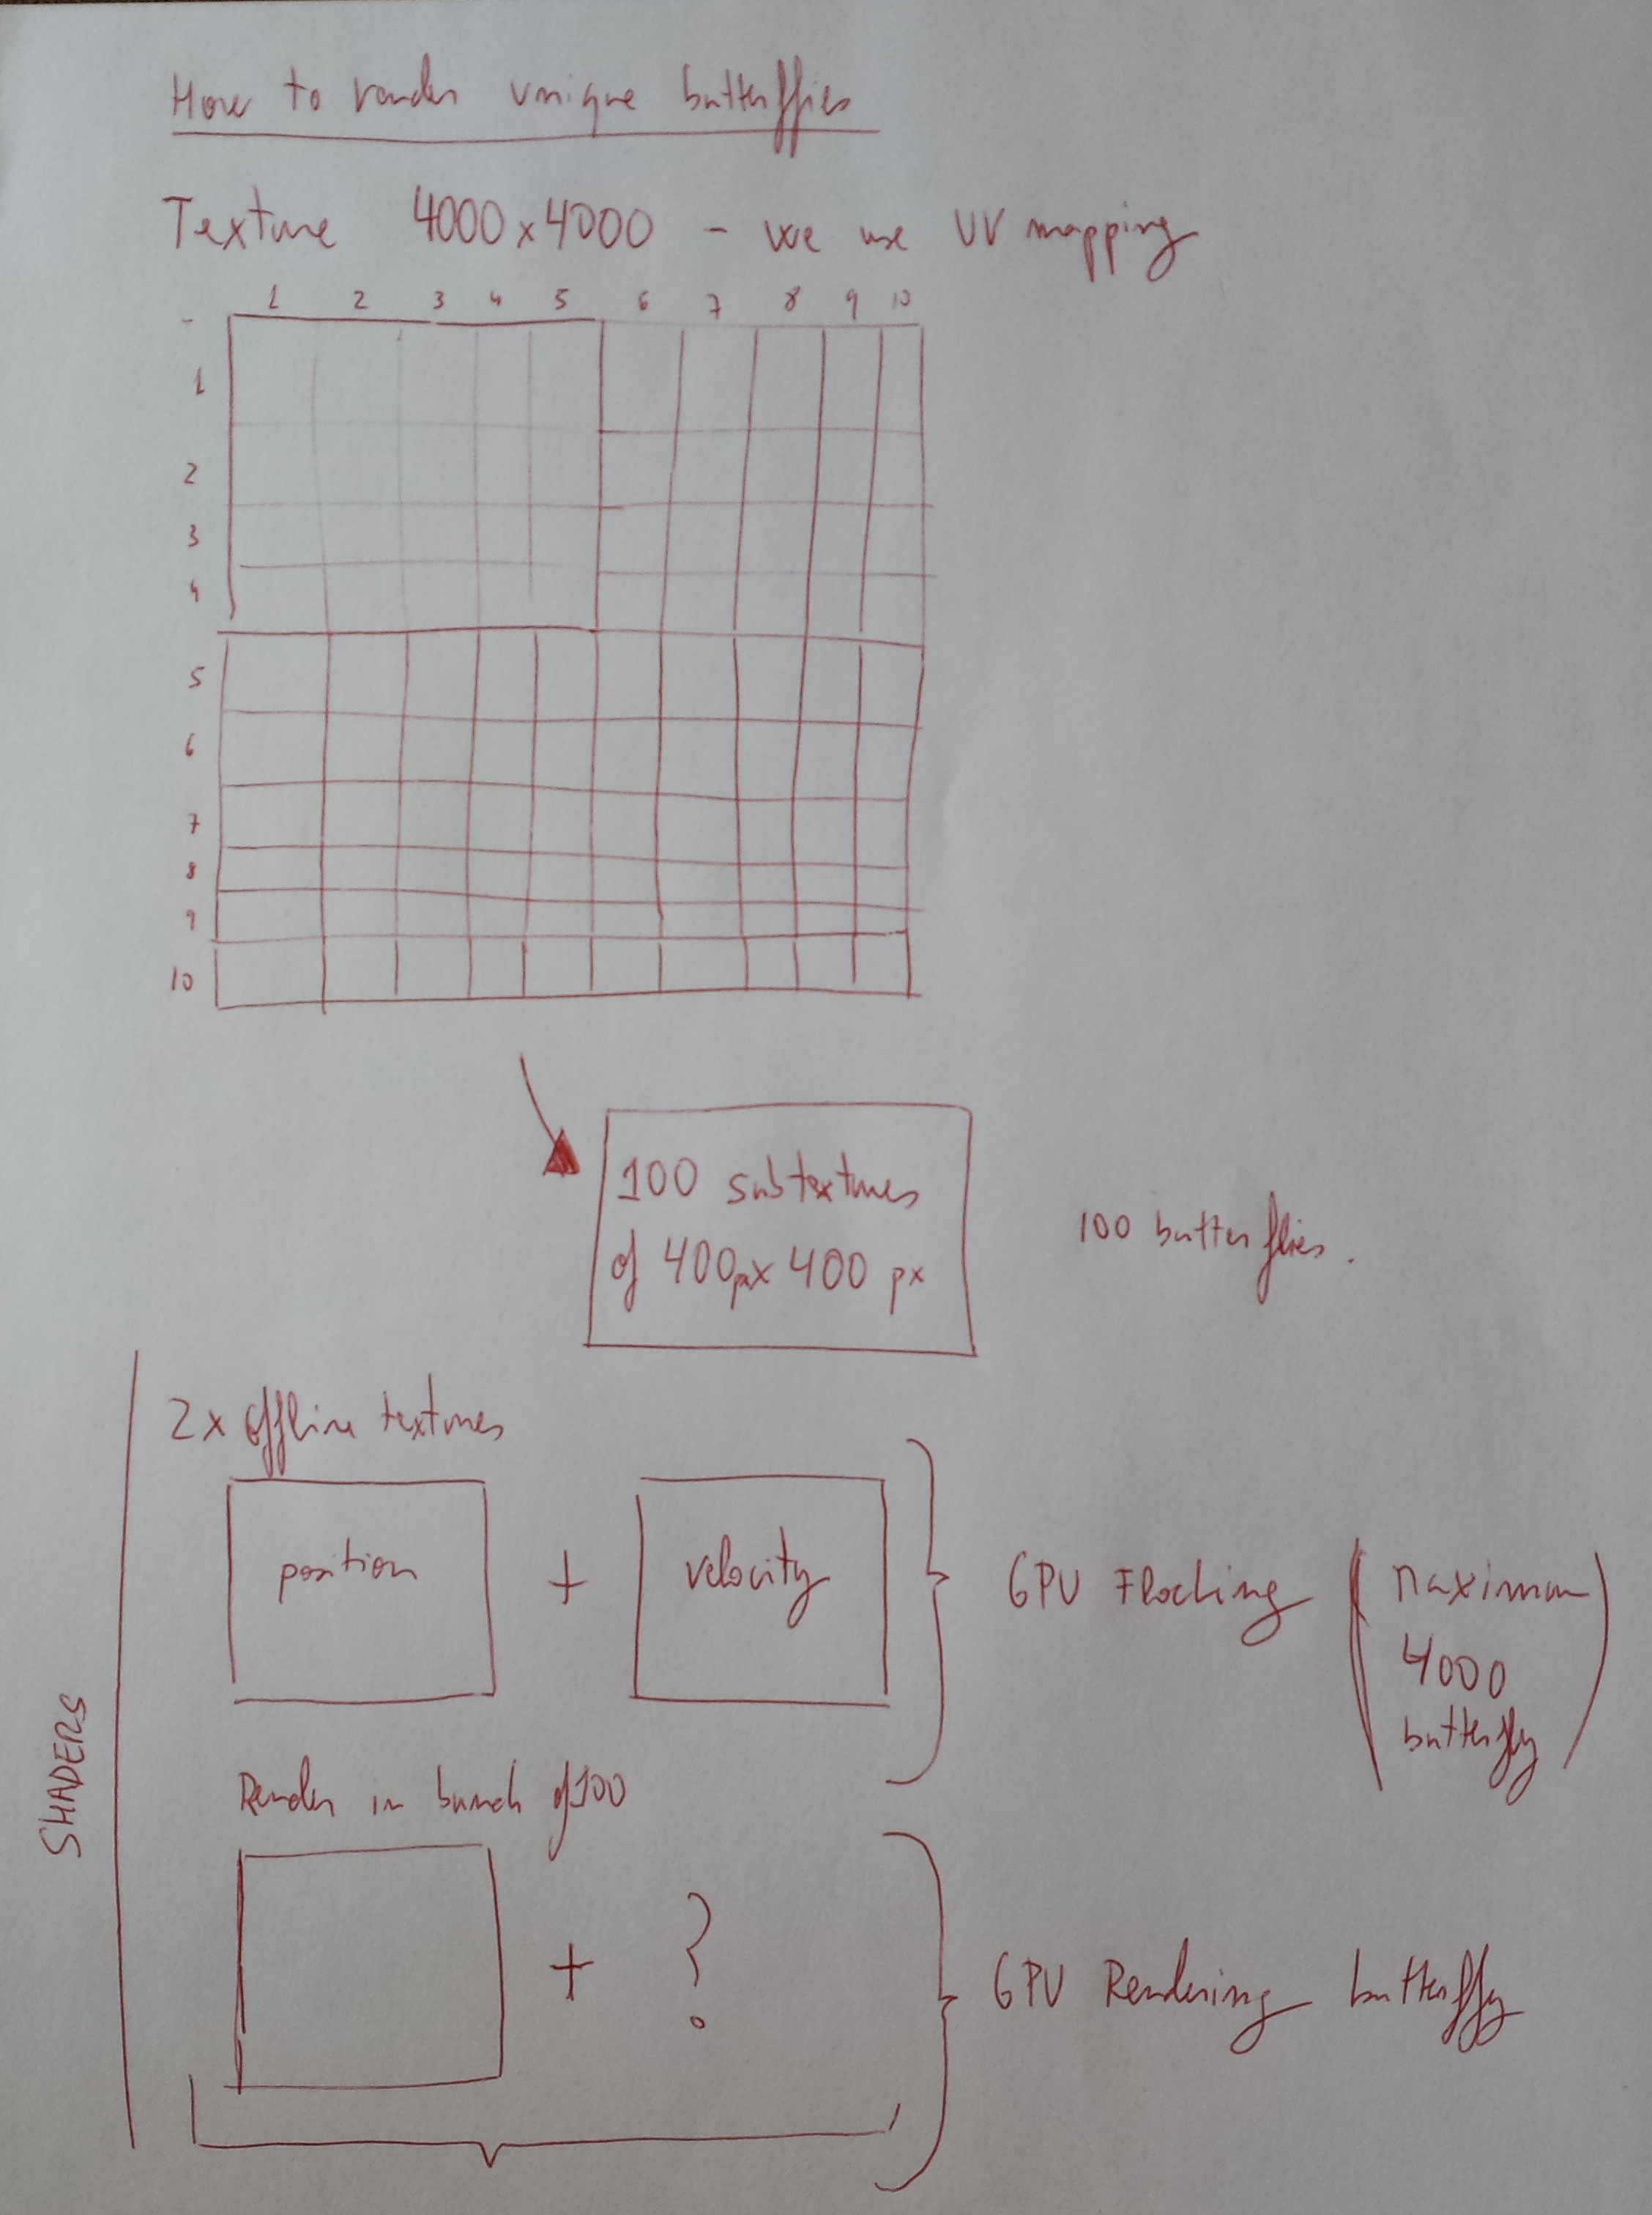 How to render unique butterflies
Texture 4000x4000 - we use UV mapping
1 2 3 4 5 6 7 8 9 10
1
2
3
4
5
6
7
8
9
10
100 subtextures
of 400px x 400 px
100 butterflies.
2x offline textures
position + velocity
GPU Flocking
(maximum
4000
butterfly)
Render in bunch of 100
+ ?
GPU Rendering butterfly
SHADERS